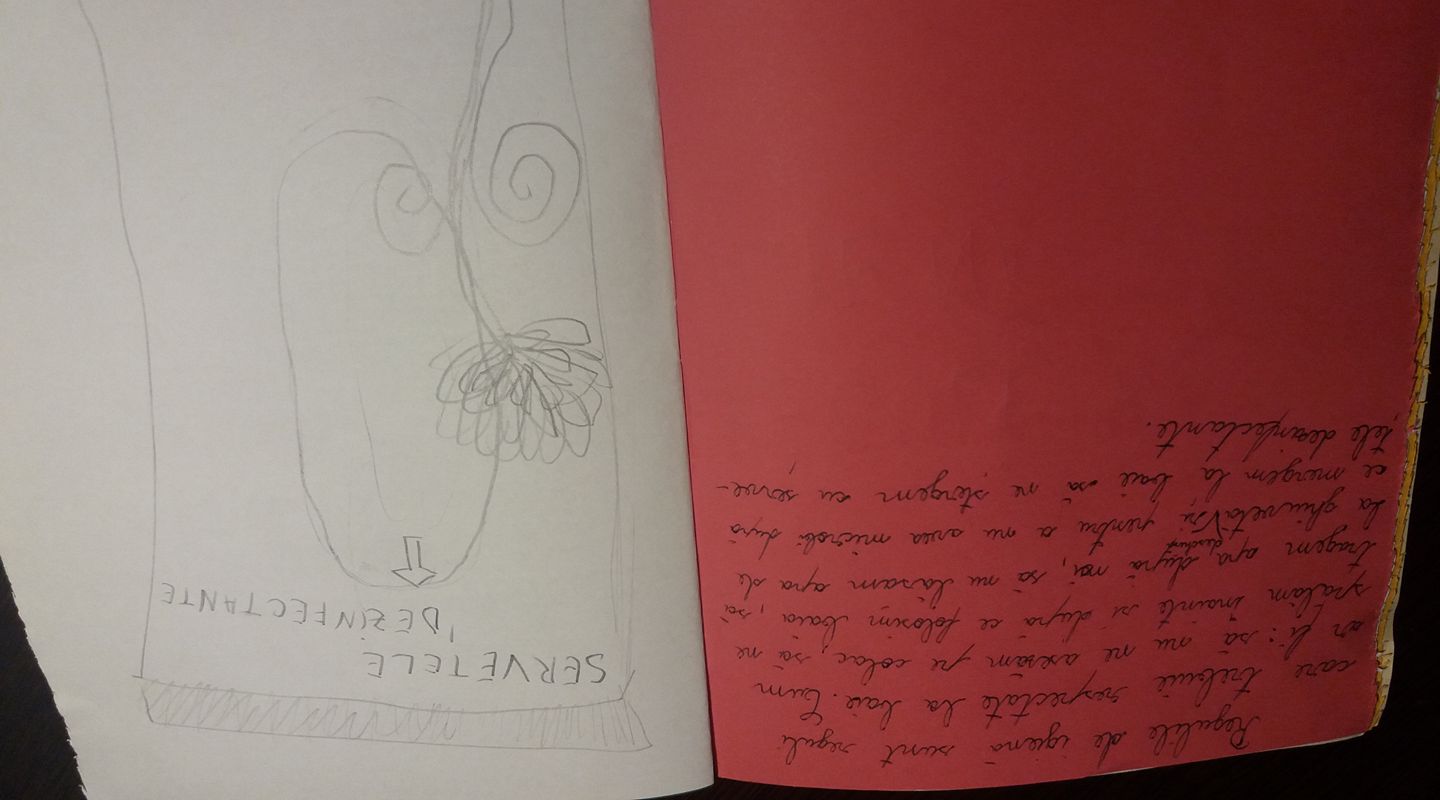 Regulile de igienă sunt reguli
care trebuie respectate la baie. Cum
ar fi: să nu ne asezăm pe colac, să ne
spălăm înainte si după ce folosim baia, să
tragem apa după noi, să nu lăsam apa de
deschisă
la ghiuvetă și pentru a nu avea microbi după
ce mergem la baie să ne ștergem cu serve-
țele dezinfectante.
SERVEȚELE
DEZINFECTANTE